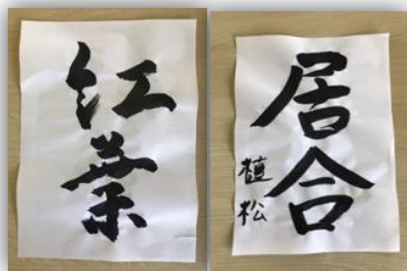 紅葉
居合
植松